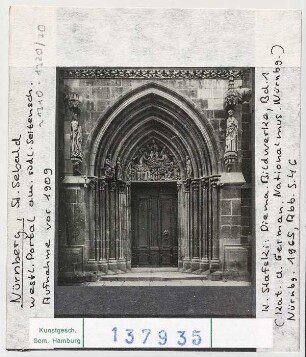 Nürnberg, St. Sebald
westl. Portal am südl. Seitensch.
1310-1320/20
Aufnahme vor 1909
W. Stafski: Die ma. Bildwerke Bd. 1
(Kat. d. German. Nationalmus. Nürnbg.)
Nürnbg. 1965, Abb. S. 46
Kunstgesch.
Sem. Hamburg
137935